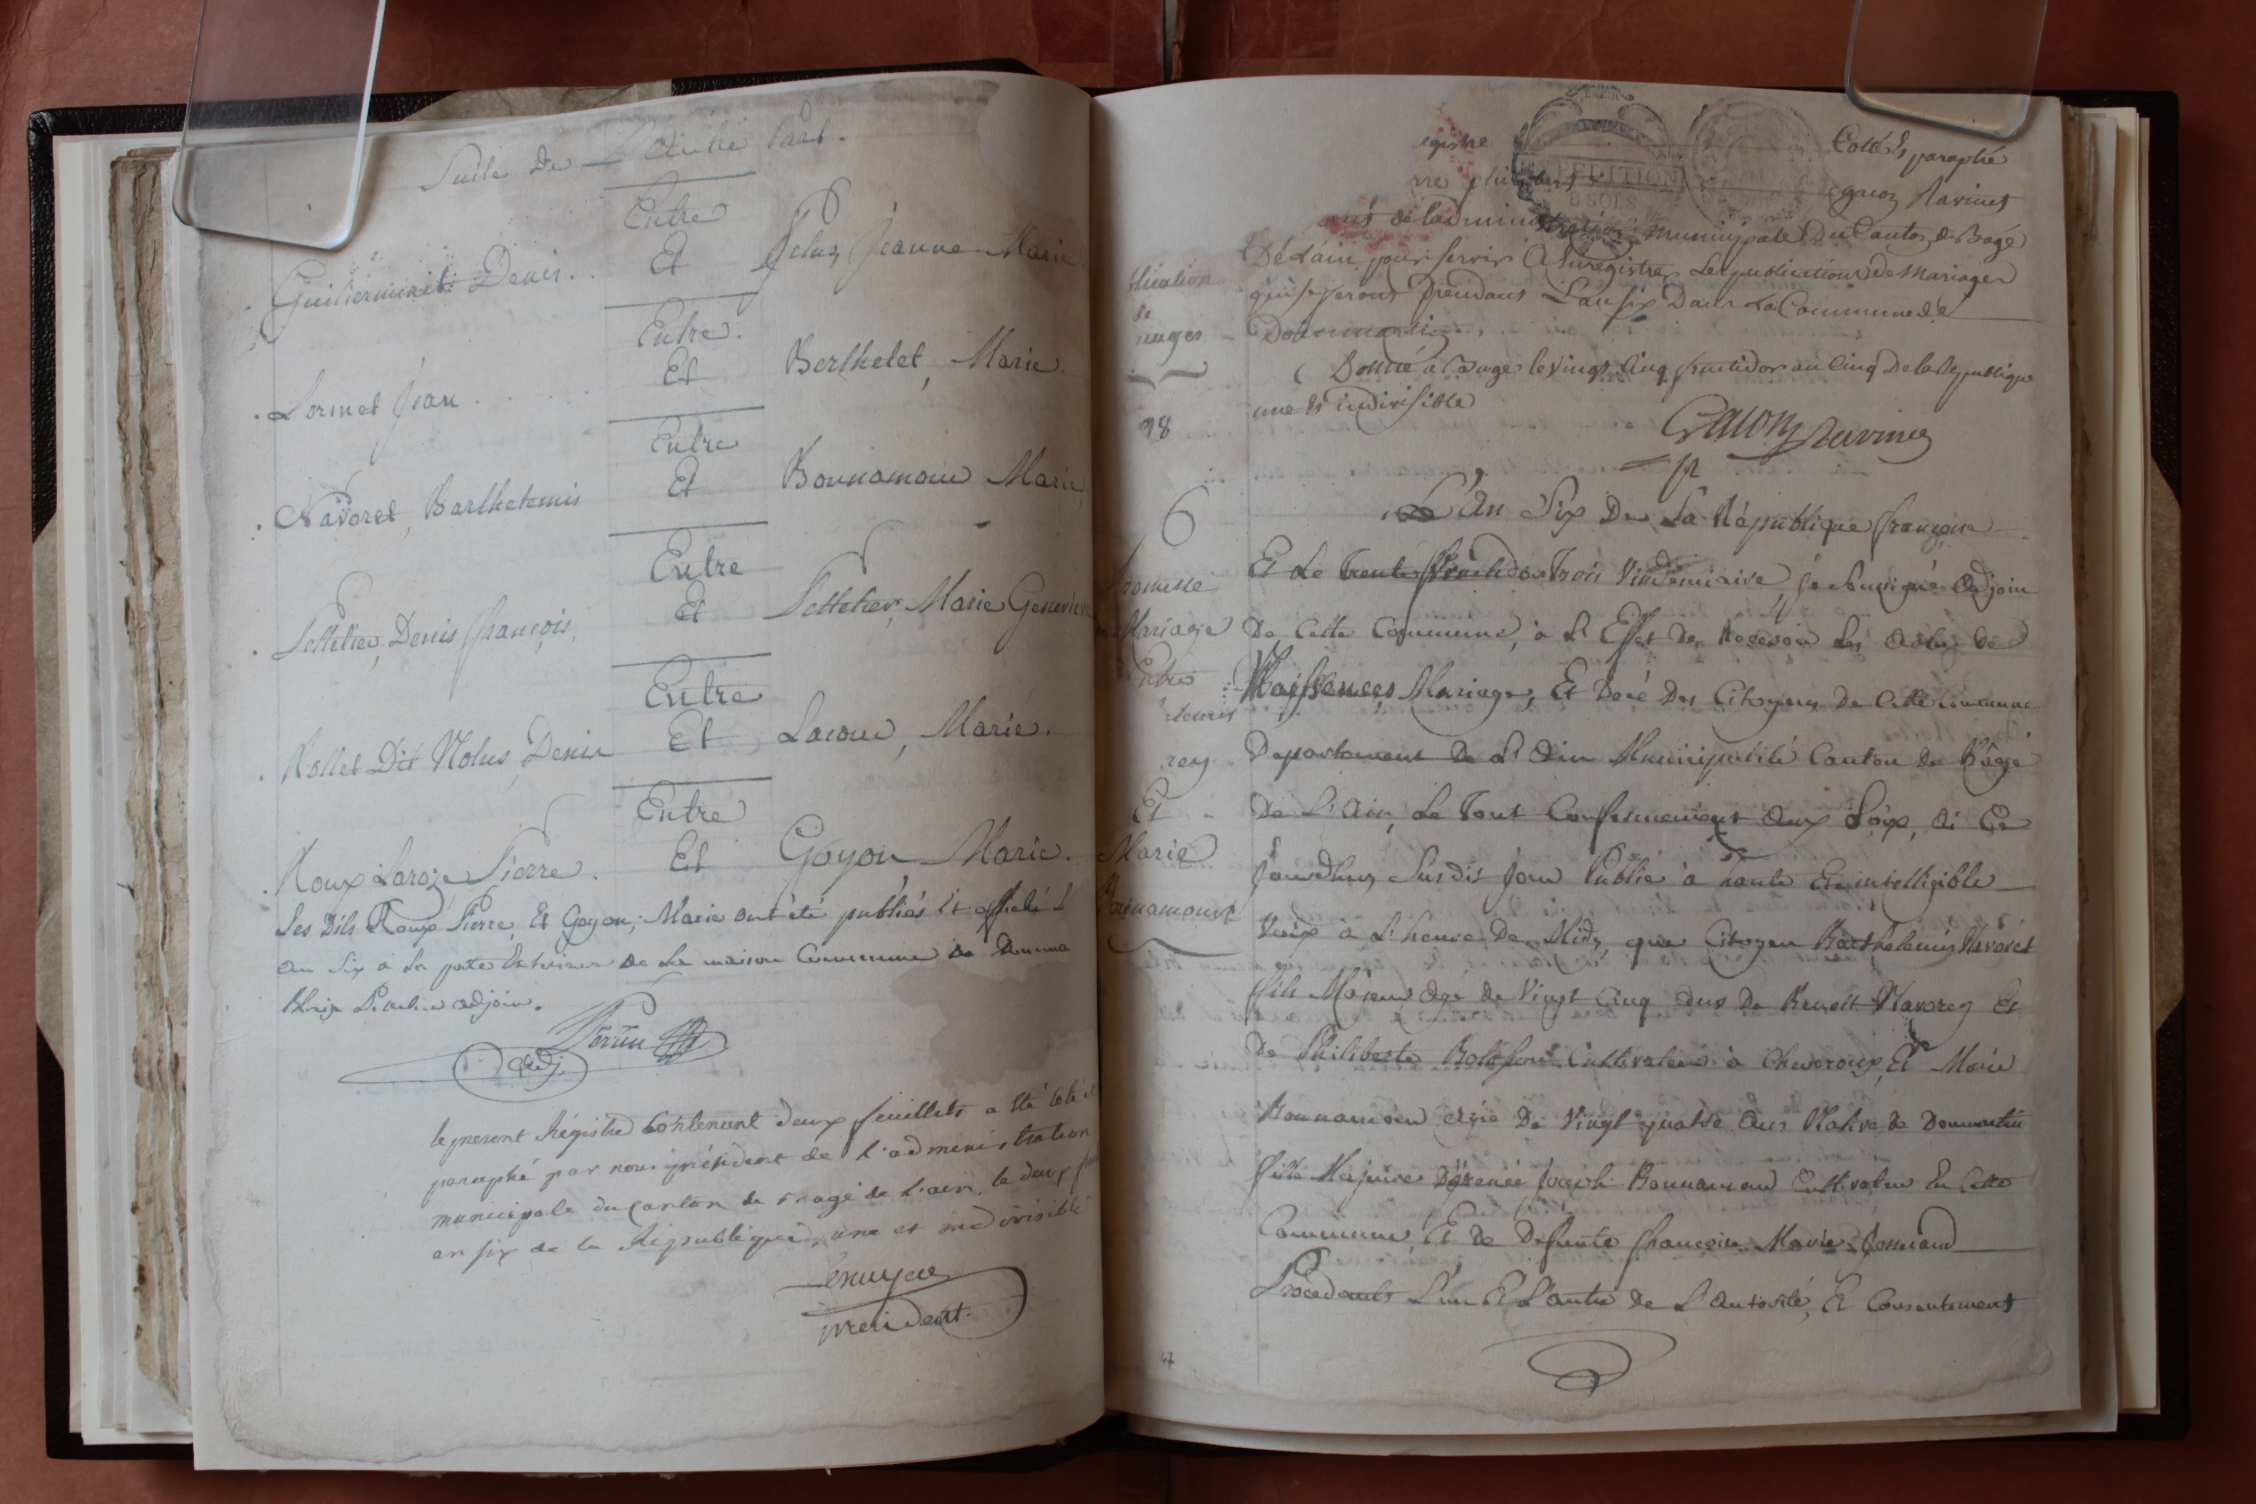 Suite De L'autre Part.
Entre
Guillerminet Denis. Et Pelus, Jeanne Marie
Entre.
Lormet Jean Et Berthelet, Marie.
Entre
Navoret, Barthelemis Et Bonnamour Marie
Entre
Pelletier, Denis François, Et Pelletier, Marie Genevieve
Entre
Rollet Dit Nolus, Denis Et Lacour, Marie.
Entre
Roux Laroze Pierre. Et Goyon Marie.
Les Dits Roux Pierre, Et Goyon, Marie ont été publiés Et affiché L
an Six à La porte Exterieur de La maison Commune de Domma
adjoin.
adj.
le present Régistre Contenant deux feuillets a été coté et
paraphé par nous président de l'administration
municipale du canton de Bagé de L'ain, le deux
an six de la République, une et indivisible
président.
egistre Cotté Et paraphé
Ravinet
de L'administration municipale Du Canton de Bagé
De L'ain pour servir A Enregistrer Les publications de Mariages
qui se feront pendant L'an six Dans La Commune de
Dommartin
Donné à Baugé le vingt Cinq fructidor an Cinq De la Republique
une Et indivisible
blication
de
riages
98
EXPEDITION
8 SOLS
L'An Six De La République françoise
6
romesse
Mariage
Entre
Et
Marie
Bonnamour
Et Le trente fructidor Trois Vindemiaire, je soussigné adjoin
De Cette Commune, à L'Effet de Recevoir Les actes de
Naissances, Mariage, Et Décé Des Citoyens De Cette Commune
Departement De L'Ain Municipalité Canton de Bâgé
De L'Ain, Le Tout Conformement aux Loix, ai Ce
Jourdhuy Susdit jour Publié à haute Et intelligible
Voix à L'heure De Midy que Citoyen Barthelemy Navoret
fils Majeur Agé de Vingt Cinq ans De Benoit Navorey Et
De Philiberte Cultivateur à Chevroux, Et Marie
Bonnamour Agée De Vingt quatre ans Native de Dommartin
fille Majeure Joseph Bonnamour Cultivateur En Cette
Commune, Et de Defunte françoise Marie
Procedants L'un Et L'autre de L'Autorité, Et Consentement
47